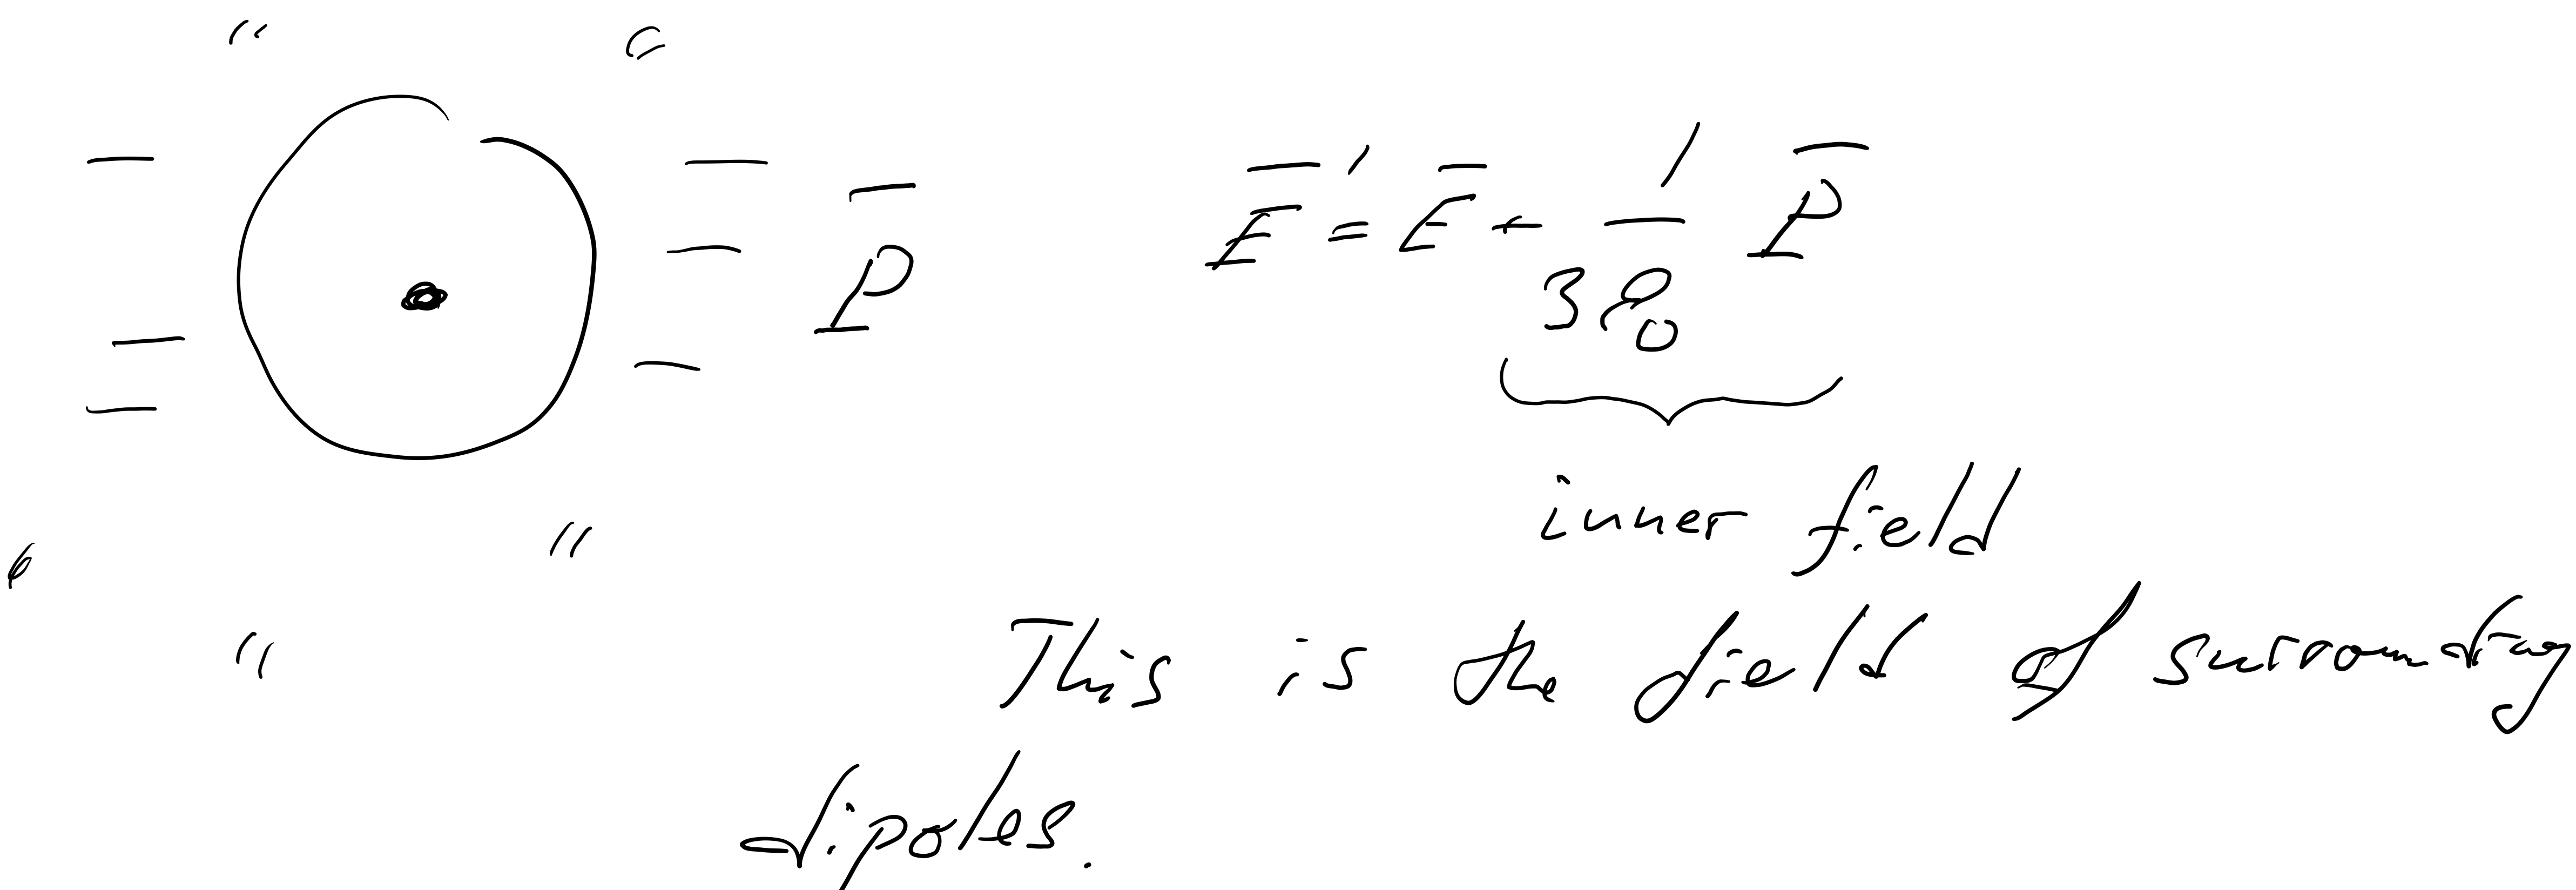 P̄
Ē' = Ē + 1/(3ε₀) P̄
inner field
This is the field of surrounding
dipoles.